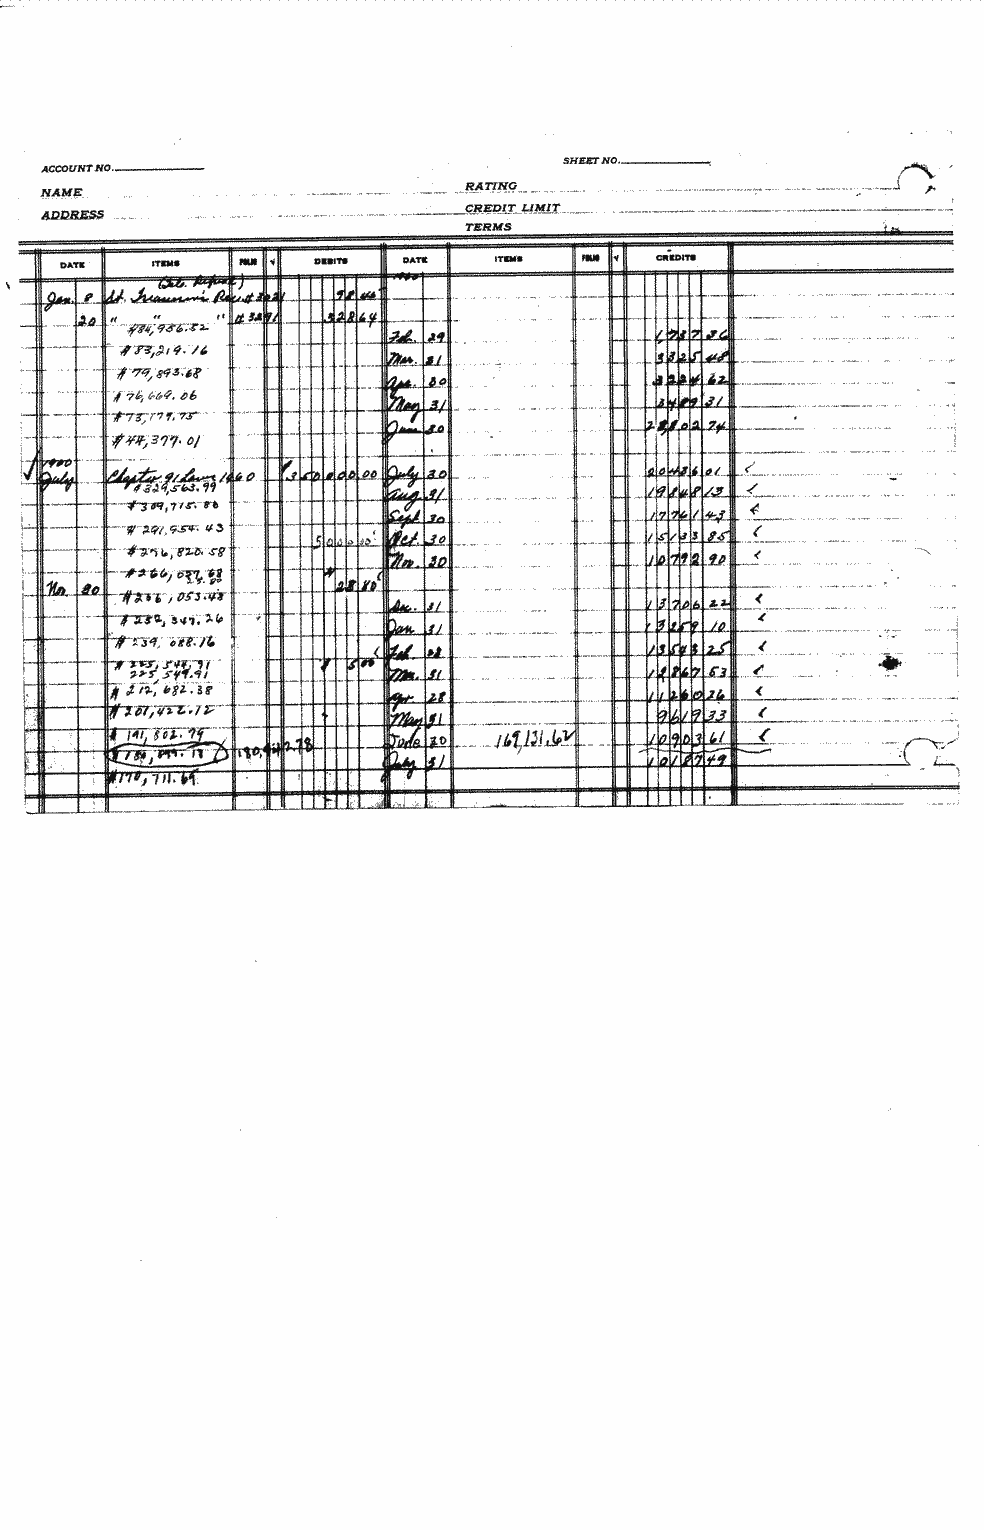 ACCOUNT NO.
SHEET NO.
NAME
RATING
ADDRESS
CREDIT LIMIT
TERMS
DATE ITEMS FOLIO √ DEBITS DATE ITEMS FOLIO √ CREDITS
Jan. 8 St. Treasurer's Rec. # 3021
20 " " " # 3291 328 64
$84,956.52
Feb. 29 1,737 36
$83,219.16
Mar. 31 3325 48
$79,893.68
Apr. 30 3224 62
$76,669.06
May 31 3489 31
$73,179.75
June 30 28,802 74
$44,377.01
1960
July Chapter 91 Laws 1960 $350 000.00 July 30 20436 01
$329,563.99
Aug. 31 19848 13
$309,715.86
Sept. 30 17761 43
$291,954.43
5000.00 Oct. 30 15133 85
$276,820.58
Nov. 30 10792 90
Nov. 30 28 80
$266,053.48
Dec. 31 13706 22
$252,347.26
Jan 31 13259 10
$239,088.16
Feb. 28 13543 25
$225,544.91 $ 5.00
225,549.91
Mar. 31 12867 53
$212,682.38
Apr. 28 11260 26
$201,422.12
May 31 9619 33
$191,802.79
June 30 169,131.62 10903 61
July 31 10187 49
$170,711.69